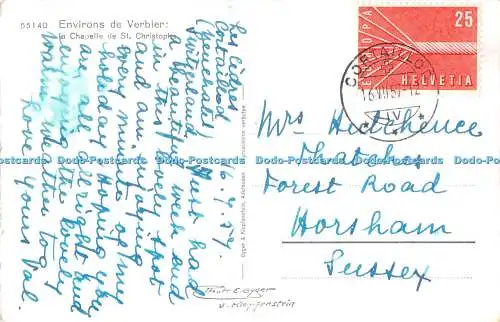 55140 Environs de Verbier:
la Chapelle de St. Christophe
Les Cèdres
Cortaillod
(Neuchatel)
Switzerland 16.7.57.
Just had
a beautiful week and
and am in this lovely spot
enjoying
every minute of my
holiday. Hoping you
are all alright and
enjoying the lovely
warm weather today
Love yours Val.
Gyger & Klopfenstein, Adelboden
Thöni E. Gyger
u. Klopfenstein
EUROPA
25
HELVETIA
CORTAILLOD
16.VII.57.-12
Mrs Hutchence
Thatches
Forest Road
Horsham
Sussex
Postcards Postcards Postcards Postcards Postcards Postcards